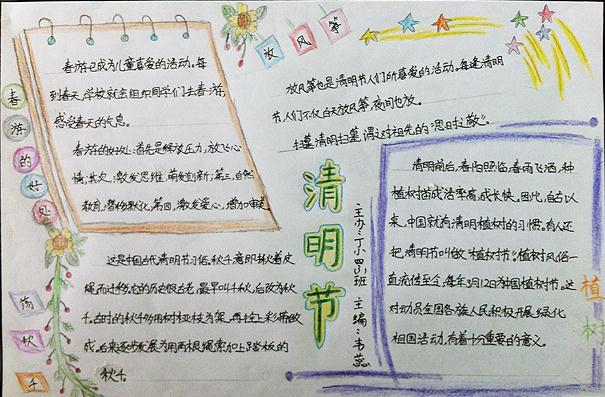 春游的好处
春游已成为儿童喜爱的活动。每
到春天,学校就会组织同学们去春游,
感受春天的气息。
春游的好处:首先是释放压力,放飞心
情;其次,激发思维,萌发创新;第三,自然
教育,替你默化,第四,激发爱心,增加审美
放风筝
放风筝也是清明节人们所喜爱的活动。每逢清明
节,人们不仅白天放风筝,夜间也放。
扫墓清明扫墓,谓之对祖先的"思时敬"。
清明节
主办:丁小四(3)班 主编:韦蕊
荡秋千
这是中国古代清明节习俗,秋千意即揪着皮
绳而迁移,它的历史很古老,最早叫千秋,后改为秋
千,古时的秋千多用树桠枝为架,再拴上彩带做
成,后来逐步发展为用两根绳索加上踏板的
秋千。
植树
清明前后,春阳照临,春雨飞洒,种
植树苗成活率高,成长快。因此,自古以
来,中国就有清明植树的习惯。有人还
把清明节叫做"植树节"。植树风俗一
直流传至今,每年3月12日为中国植树节。这
对动员全国各族人民积极开展绿化
祖国活动,有着十分重要的意义。